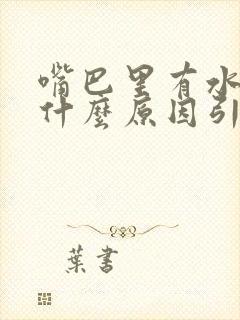 嘴巴里有水
什麼原因引
葉書